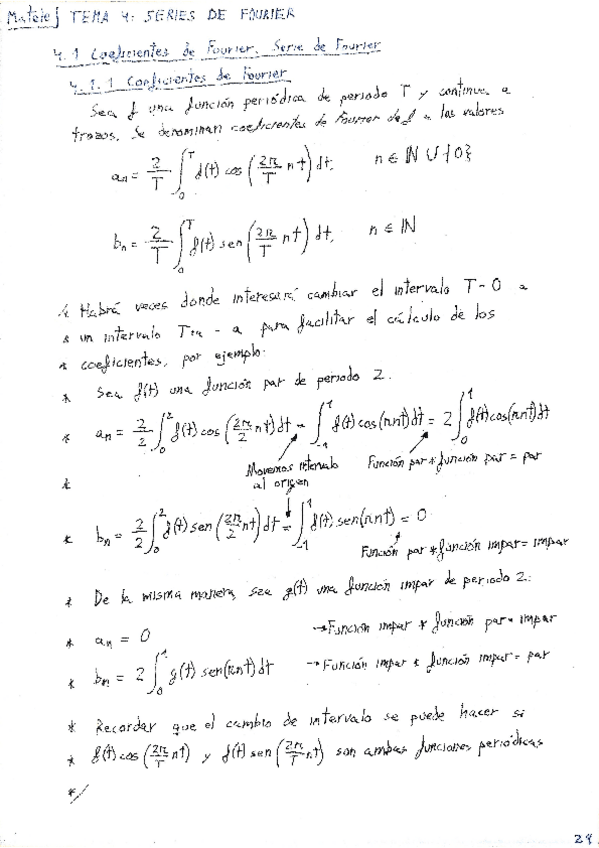 Matieej TEMA 4: SERIES DE FOURIER
4.1 Coeficientes de Fourier. Serie de Fourier
4.1.1 Coeficientes de Fourier
Sea f una función periódica de periodo T y continua a
trozos. Se denominan coeficientes de Fourier de f a los valores
an = 2/T ∫₀ᵀ f(t) cos (2π/T nt) dt, n ∈ ℕ ∪ {0}
bn = 2/T ∫₀ᵀ f(t) sen (2π/T nt) dt, n ∈ ℕ
Habrá veces donde interesará cambiar el intervalo T-0 a
* un intervalo T+a - a para facilitar el cálculo de los
* coeficientes, por ejemplo:
* Sea f(t) una función par de periodo 2.
* an = 2/2 ∫₀² f(t) cos (2π/2 nt) dt = ∫₋₁¹ f(t) cos(πnt) dt = 2 ∫₀¹ f(t) cos(πnt) dt
Movemos intervalo al origen
Función par * función par = par
*
* bn = 2/2 ∫₀² f(t) sen (2π/2 nt) dt = ∫₋₁¹ f(t) sen(πnt) = 0
Función par * función impar = impar
* De la misma manera, sea g(t) una función impar de periodo 2:
* an = 0 → Función impar * función par = impar
* bn = 2 ∫₀¹ g(t) sen(πnt) dt → Función impar * función impar = par
* Recordar que el cambio de intervalo se puede hacer si
* f(t) cos (2π/T nt) y f(t) sen (2π/T nt) son ambas funciones periódicas
*/